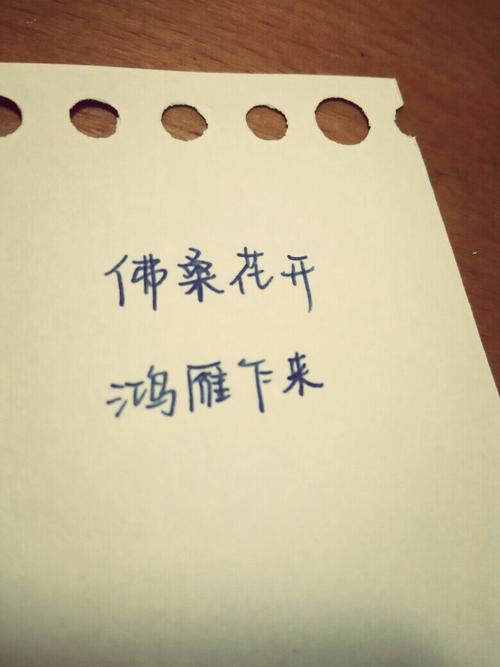 佛桑花开
鸿雁乍来